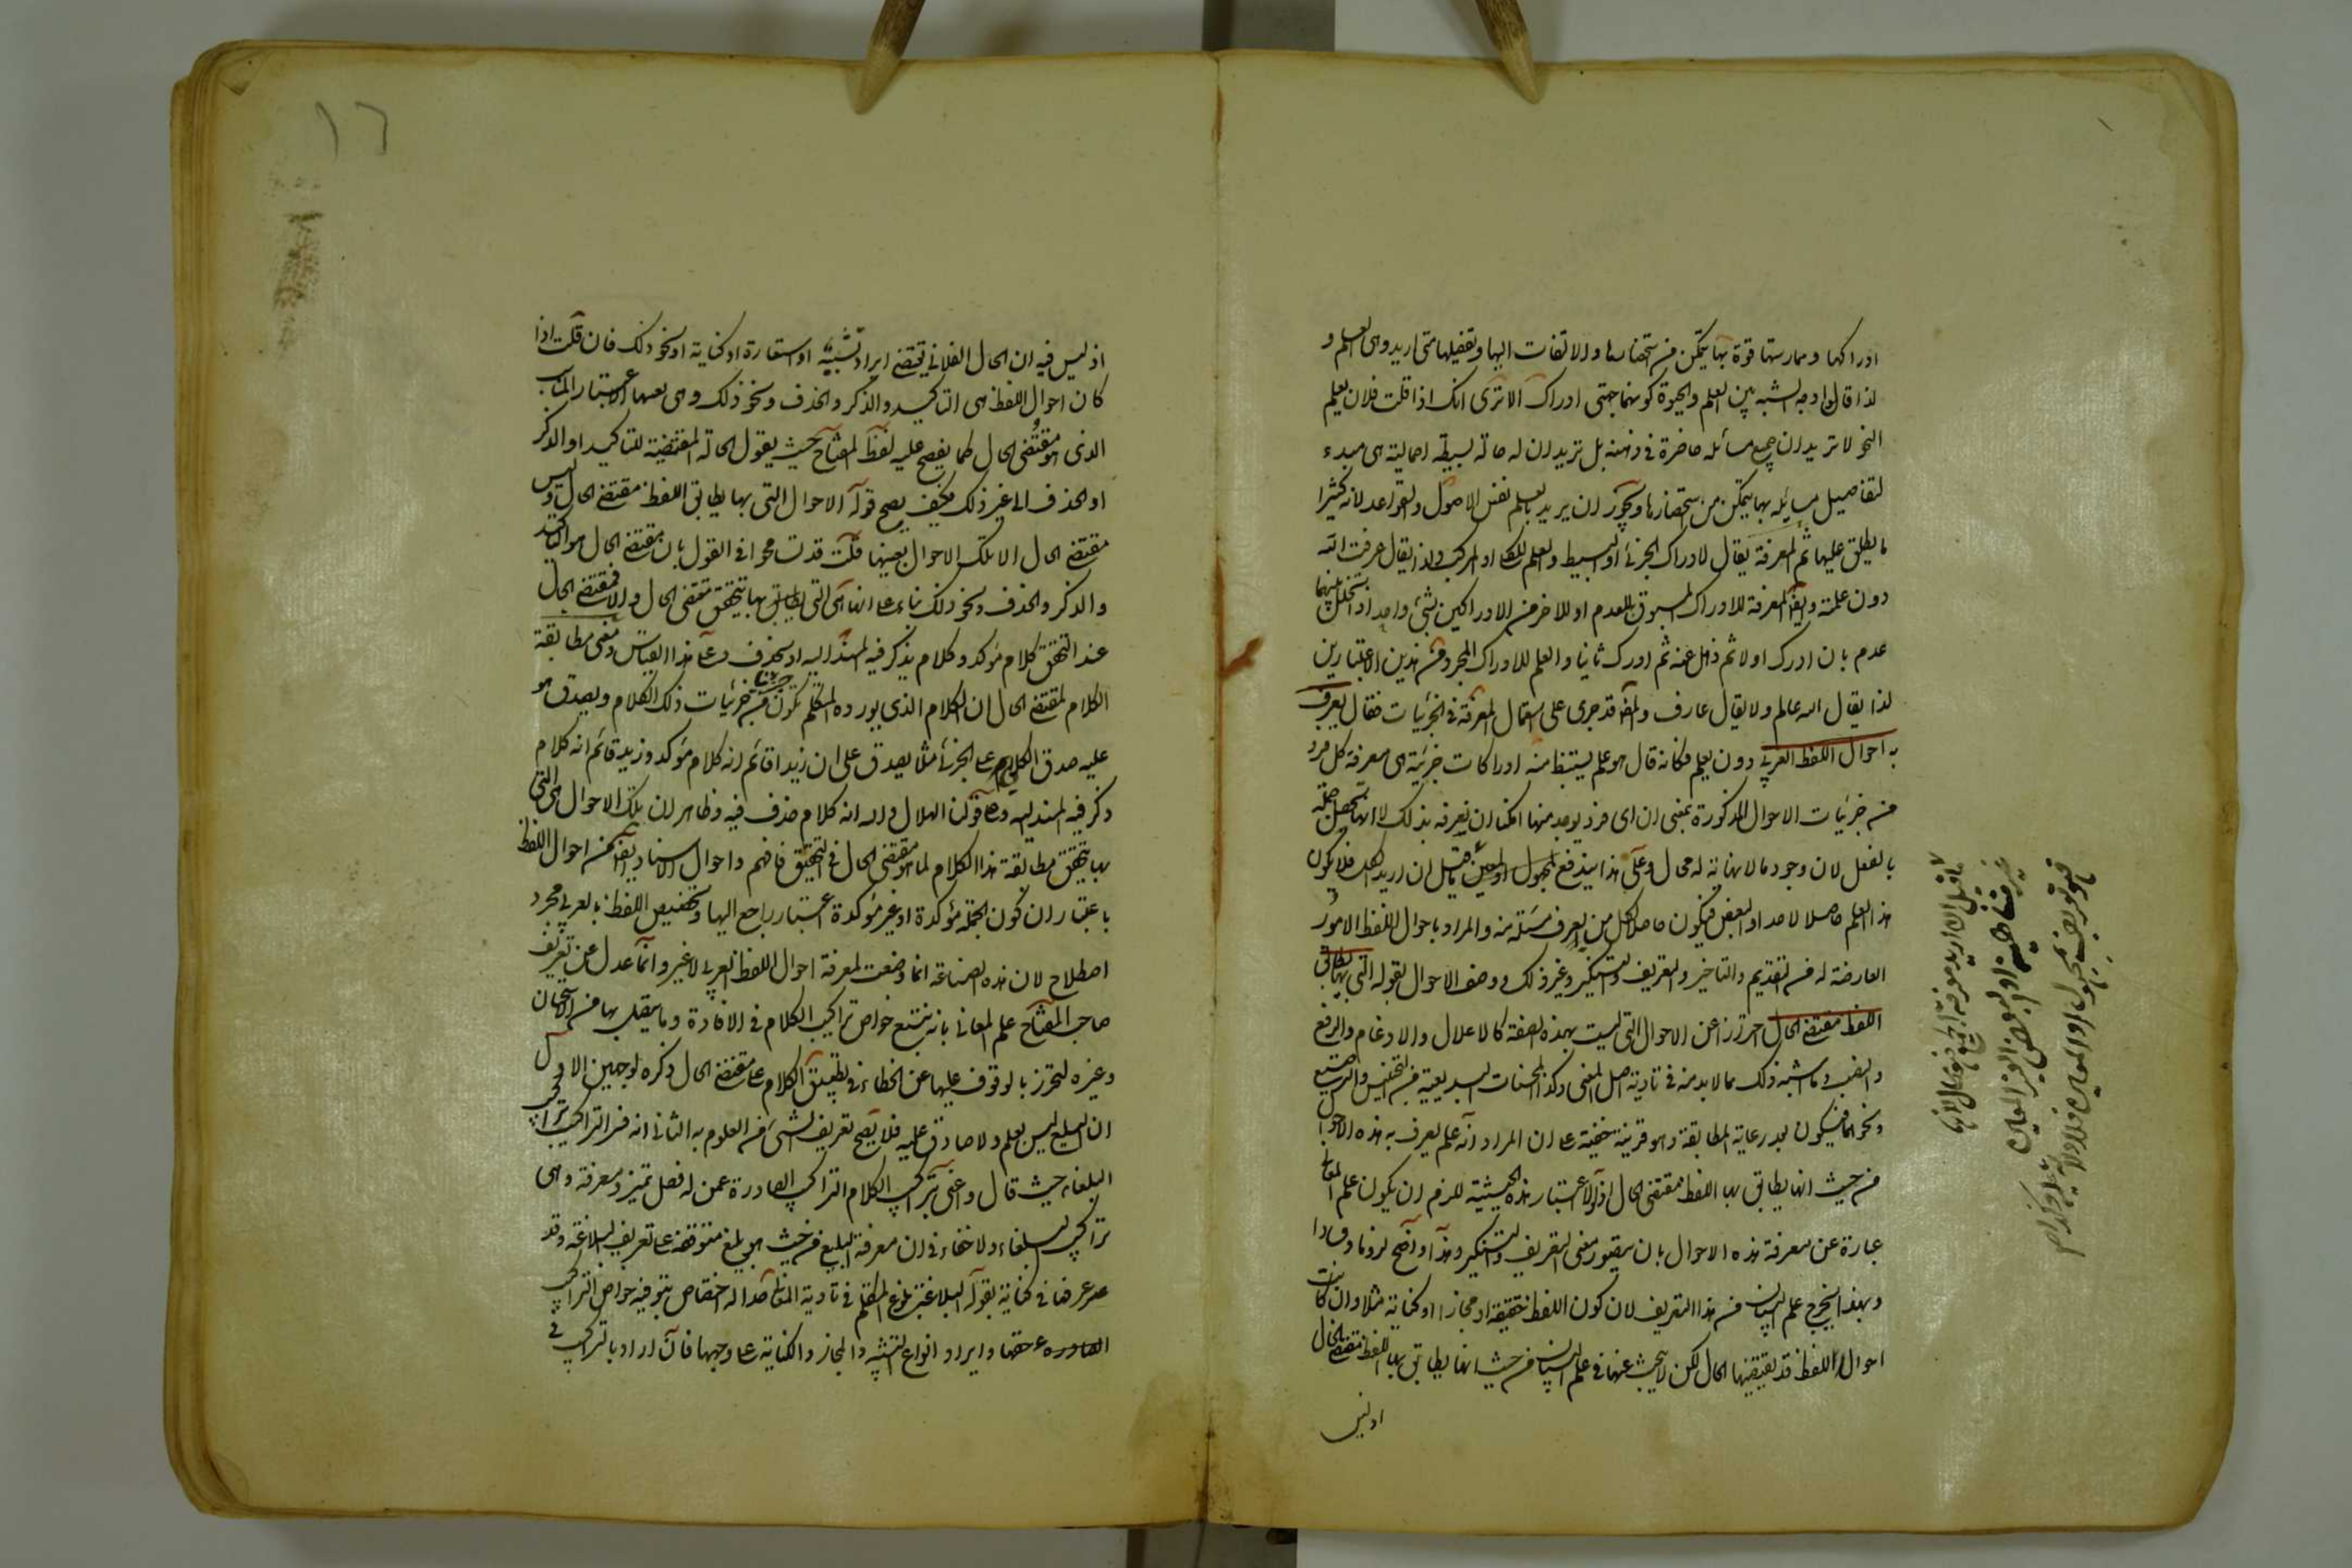 ادراكها وممارستها قوة بها يتمكن من استحضارها والالتفات اليها وتفصيلها متى اريد وهى العلم و
لذا قال وجه الشبه بين العلم والحيوة كونهما جهتى ادراك الا ترى انك اذا قلت فلان يعلم
النحو لا تريد ان جميع مسائله حاضرة فى ذهنه بل تريد ان له حالة بسيطة اجمالية هى مبدء
لتفاصيل مسائله بها يتمكن من استحضارها ويجوز ان يريد بالعلم نفس الاصول والقواعد لانه كثيرا
ما يطلق عليها ثم المعرفة يقال لادراك الجزئى او البسيط والعلم للكلى او المركب ولذا يقال عرفت الله
دون علمته وايضا المعرفة للادراك المسبوق بالعدم او للاخير من الادراكين بشئ واحد اذا تخلل بينهما
عدم بان ادرك اولا ثم ذهل عنه ثم ادرك ثانيا والعلم للادراك المجرد من هذين الاعتبارين
لذا يقال الله عالم ولا يقال عارف والمص قد جرى على استعمال المعرفة فى الجزئيات فقال يعرف
به احوال اللفظ العربى دون يعلم فكانه قال هو علم يستنبط منه ادراكات جزئية هى معرفة كل فرد
من جزئيات الاحوال المذكورة بمعنى ان اى فرد يوجد منها امكننا ان نعرفه بذلك لا انها تحصل جملة
بالفعل لان وجود ما لا نهاية له محال وعلى هذا يندفع ما قيل ان اريد الكل فلا يكون
هذا العلم حاصلا لاحد او البعض فيكون حاصلا لكل من يعرف مسئلة منه والمراد باحوال اللفظ الامور
العارضة له من التقديم والتاخير والتعريف والتنكير وغير ذلك ووصف الاحوال بقوله التى بها يطابق
اللفظ مقتضى الحال احترز عن الاحوال التى ليست بهذه الصفة كالاعلال والادغام والرفع
والنصب وما اشبه ذلك مما لا بد منه فى تادية اصل المعنى وكذا المحسنات البديعية من التجنيس والترصيع
ونحوهما مما يكون بعد رعاية المطابقة وهو قرينة خفية على ان المراد انه علم يعرف به هذه الاحوال
من حيث انها يطابق بها اللفظ مقتضى الحال اذ لولا اعتبار هذه الحيثية للزم ان يكون علم المعانى
عبارة عن معرفة هذه الاحوال بان يتصور معنى التعريف والتنكير وهذا واضح لزوما وفسادا
وبهذا يخرج علم البيان من هذا التعريف لان كون اللفظ حقيقة او مجازا او كناية مثلا وان كانت
احوال اللفظ قد يقتضيها الحال لكن لا يبحث عنها فى علم البيان من حيث انها يطابق بها اللفظ مقتضى الحال
اذ ليس
١٦
اذ ليس فيه ان الحال الفلانى يقتضى ايراد تشبيه او استعارة او كناية او نحو ذلك فان قلت اذا
كان احوال اللفظ هى التاكيد والذكر والحذف ونحو ذلك وهى بعينها الاعتبار المناسب
الذى هو مقتضى الحال كما يفصح عليه لفظ المفتاح حيث يقول الحالة المقتضية للتاكيد او الذكر
او الحذف الى غير ذلك فكيف يصح قوله الاحوال التى بها يطابق اللفظ مقتضى الحال وليس
مقتضى الحال الا تلك الاحوال بعينها قلت قد تسامحوا فى القول بان مقتضى الحال هو التاكيد
والذكر والحذف ونحو ذلك بناء على انها هى التى بها يتحقق مقتضى الحال والا فمقتضى الحال
عند التحقق كلام مؤكد وكلام يذكر فيه المسند اليه او يحذف وعلى هذا القياس ومعنى مطابقة
الكلام لمقتضى الحال ان الكلام الذى يورده المتكلم يكون من جزئيات ذلك الكلام ويصدق هو
عليه صدق الكلى على الجزئى مثلا يصدق على ان زيدا قائم انه كلام مؤكد وزيد قائم انه كلام
ذكر فيه المسند اليه وعلى قولنا الهلال والله انه كلام حذف فيه وظاهر ان تلك الاحوال هى التى
بها يتحقق مطابقة هذا الكلام لما هو مقتضى الحال فى التحقيق فافهم واحوال الاسناد ايضا من احوال اللفظ
باعتبار ان كون الجملة مؤكدة او غير مؤكدة اعتبار راجع اليها وتخصيص اللفظ بالعربى مجرد
اصطلاح لان هذه الصناعة انما وضعت لمعرفة احوال اللفظ العربى لا غير وانما عدل عن تعريف
صاحب المفتاح علم المعانى بانه تتبع خواص تراكيب الكلام فى الافادة وما يتصل بها من الاستحسان
وغيره ليحترز بالوقوف عليها عن الخطاء فى تطبيق الكلام على ما يقتضى الحال ذكره لوجهين الاول
ان التتبع ليس بعلم ولا صادق عليه فلا يصح تعريف شئ من العلوم به الثانى انه فسر التراكيب بتراكيب
البلغاء حيث قال واعنى بتراكيب الكلام التراكيب الصادرة عمن له فضل تميز ومعرفة وهى
تراكيب البلغاء ولا خفاء فى ان معرفة البليغ من حيث هو بليغ متوقفة على تعريف البلاغة وقد
عرفها فى كتابه بقوله البلاغة بلوغ المتكلم فى تادية المعانى حدا له اختصاص بتوفية خواص التراكيب
حقها وايراد انواع التشبيه والمجاز والكناية على وجهها فان اراد بالتراكيب فى